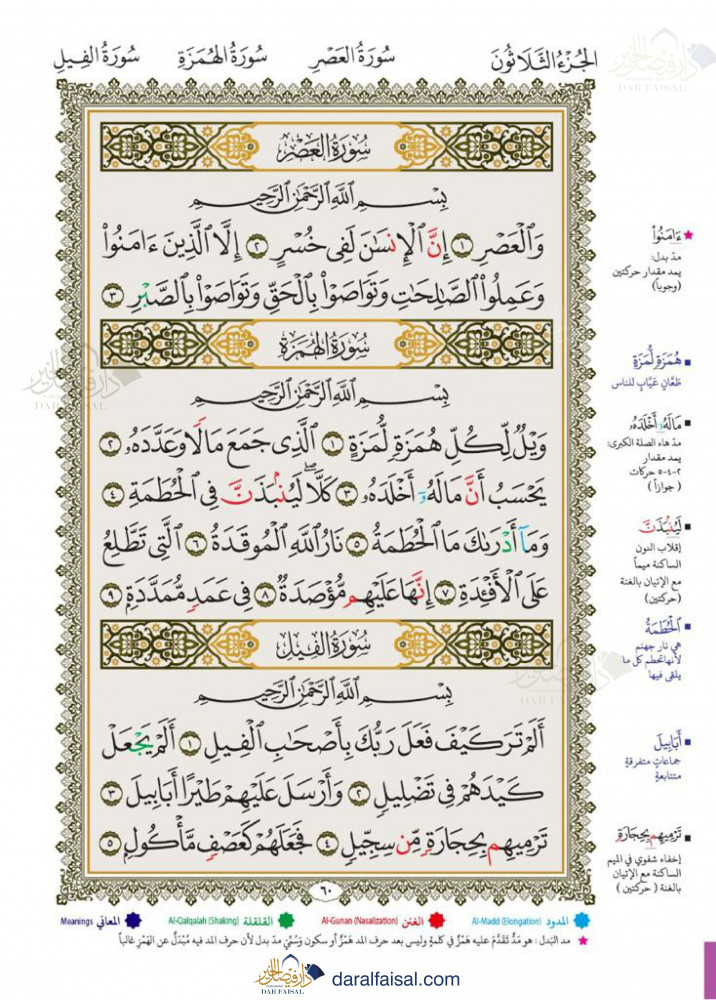 الجُزْءُ الثَّلَاثُونَ سُورَةُ العَصْرِ سُورَةُ الهُمَزَةِ سُورَةُ الفِيلِ
دار فيصل الخير
DAR FAISAL
سُورَةُ العَصْرِ
بِسْمِ اللَّهِ الرَّحْمَٰنِ الرَّحِيمِ
وَالْعَصْرِ ١ إِنَّ الْإِنسَانَ لَفِي خُسْرٍ ٢ إِلَّا الَّذِينَ ءَامَنُوا
وَعَمِلُوا الصَّالِحَاتِ وَتَوَاصَوْا بِالْحَقِّ وَتَوَاصَوْا بِالصَّبْرِ ٣
سُورَةُ الهُمَزَةِ
بِسْمِ اللَّهِ الرَّحْمَٰنِ الرَّحِيمِ
وَيْلٌ لِّكُلِّ هُمَزَةٍ لُّمَزَةٍ ١ الَّذِي جَمَعَ مَالًا وَعَدَّدَهُ ٢
يَحْسَبُ أَنَّ مَالَهُ أَخْلَدَهُ ٣ كَلَّا لَيُنۢبَذَنَّ فِي الْحُطَمَةِ ٤
وَمَا أَدْرَىٰكَ مَا الْحُطَمَةُ ٥ نَارُ اللَّهِ الْمُوقَدَةُ ٦ الَّتِي تَطَّلِعُ
عَلَى الْأَفْئِدَةِ ٧ إِنَّهَا عَلَيْهِم مُّؤْصَدَةٌ ٨ فِي عَمَدٍ مُّمَدَّدَةٍ ٩
سُورَةُ الفِيلِ
بِسْمِ اللَّهِ الرَّحْمَٰنِ الرَّحِيمِ
أَلَمْ تَرَ كَيْفَ فَعَلَ رَبُّكَ بِأَصْحَابِ الْفِيلِ ١ أَلَمْ يَجْعَلْ
كَيْدَهُمْ فِي تَضْلِيلٍ ٢ وَأَرْسَلَ عَلَيْهِمْ طَيْرًا أَبَابِيلَ ٣
تَرْمِيهِم بِحِجَارَةٍ مِّن سِجِّيلٍ ٤ فَجَعَلَهُمْ كَعَصْفٍ مَّأْكُولٍ ٥
٦٠
ءَامَنُوا
مدّ بدل:
يمد مقدار حركتين
(وجوباً)
هُمَزَةٍ لُّمَزَةٍ
طَعَّانٍ عَيَّابٍ للناس
مَالَهُ أَخْلَدَهُ
مدّ هاء الصلة الكبرى:
يمد مقدار
٢-٤-٥ حركات
(جوازاً)
لَيُنۢبَذَنَّ
إقلاب النون
الساكنة ميماً
مع الإتيان بالغنة
(حركتين)
الْحُطَمَةُ
هي نار جهنم
لأنها تحطم كل ما
يلقى فيها
أَبَابِيلَ
جماعاتٍ متفرقةٍ
متتابعةٍ
تَرْمِيهِم بِحِجَارَةٍ
إخفاء شفوي في الميم
الساكنة مع الإتيان
بالغنة (حركتين)
المدود Al-Madd (Elongation) الغنن Al-Gunan (Nasalization) القلقلة Al-Qalqalah (Shaking) المعاني Meanings
مد البَدل : هو مَدٌّ تَقَدَّمَ عليه هَمْزٌ في كلمةٍ وليس بعد حرف المد هَمْزٌ أو سكون وَسُمِّيَ مدّ بدل لأن حرف المد فيه مُبْدَلٌ عن الهَمْزِ غالباً
دار فيصل الخير
DAR FAISAL
daralfaisal.com